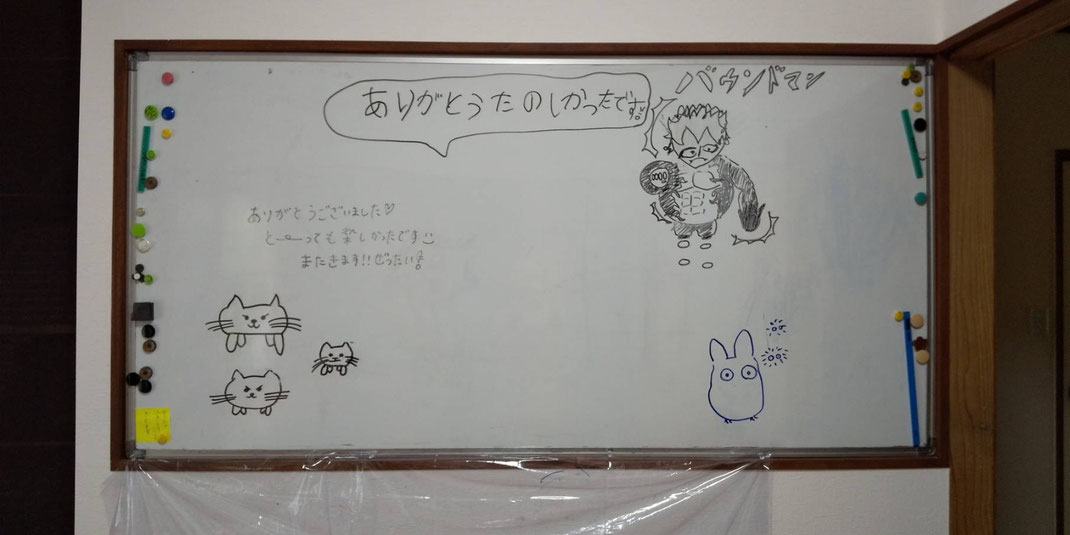 ありがとうたのしかったです!
バウンドマン
ありがとうございました♡
とーっても楽しかったです
またきます!!ぜったい!